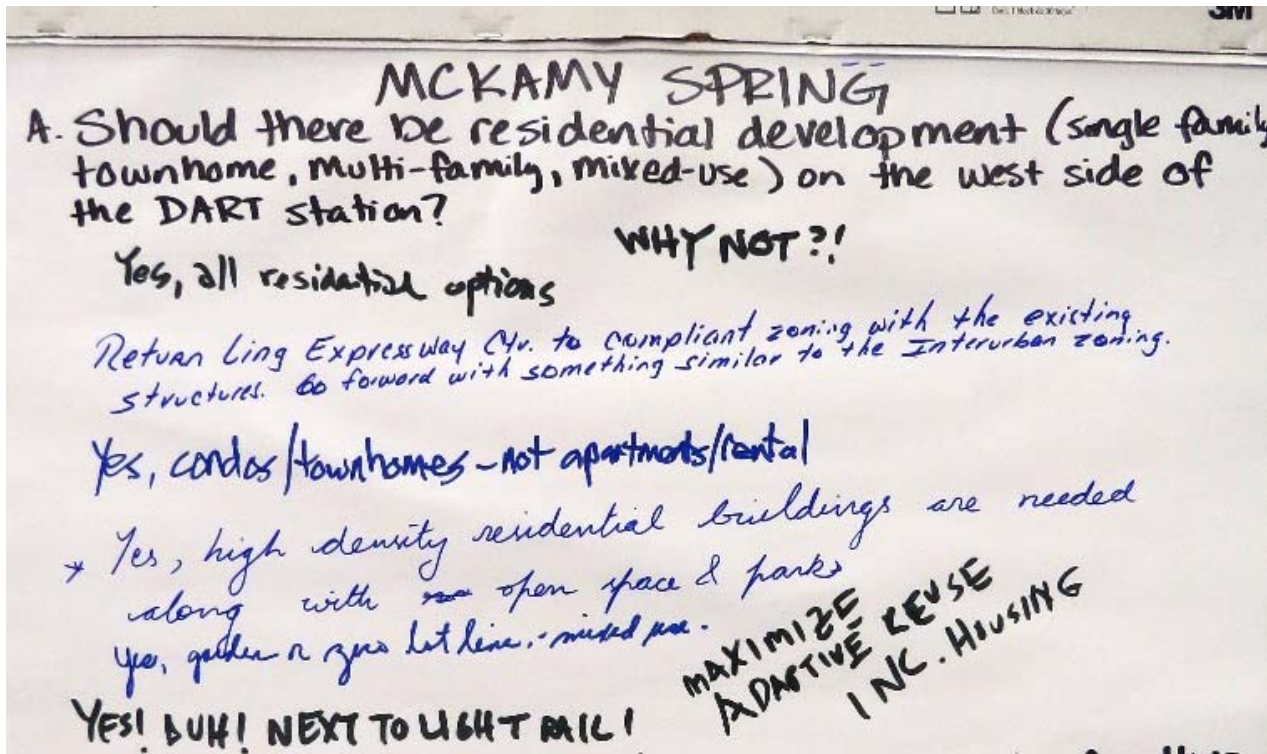 3M
MCKAMY SPRING
A. Should there be residential development (single family
townhome, multi-family, mixed-use) on the west side of
the DART station?
WHY NOT?!
Yes, all residential options
Return Ling Expressway Ctr. to compliant zoning with the existing
structures. Go forward with something similar to the Interurban zoning.
Yes, condos/townhomes - not apartments/rental
* Yes, high density residential buildings are needed
along with open space & parks
Yes, garden or zero lot line, - mixed use.
MAXIMIZE
ADAPTIVE REUSE
INC. HOUSING
YES! DUH! NEXT TO LIGHT RAIL!